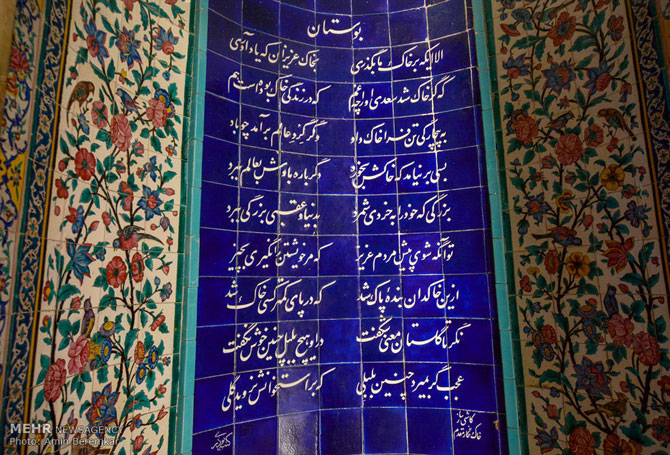 بوستان
الا ایکه بر خاک ما بگذری بخاک عزیزان که یاد آوری
که گر خاک شد سعدی او را چه غم که در زندگی خاک بوده است هم
به بیچارگی تن فرا خاک داد وگر گرد عالم برآمد چو باد
بسی برنیاید که خاکش خورد دگرباره بادش بعالم برد
بزرگی که خود را به خردی شمرد بدنیا و عقبی بزرگی ببرد
تو آنگه شوی پیش مردم عزیز که مر خویشتن را نگیری بچیز
ازین خاکدان بنده پاک شد که در پای کمتر کسی خاک شد
نگر تا گلستان معنی شکفت در او هیچ بلبل چنین خوش نگفت
عجب گر بمیرد چنین بلبلی که بر استخوانش نروید گلی
کاشی ساز
خاک نگار مقدم
MEHR NEWS AGENCY
Photo: Amin Berenjkar